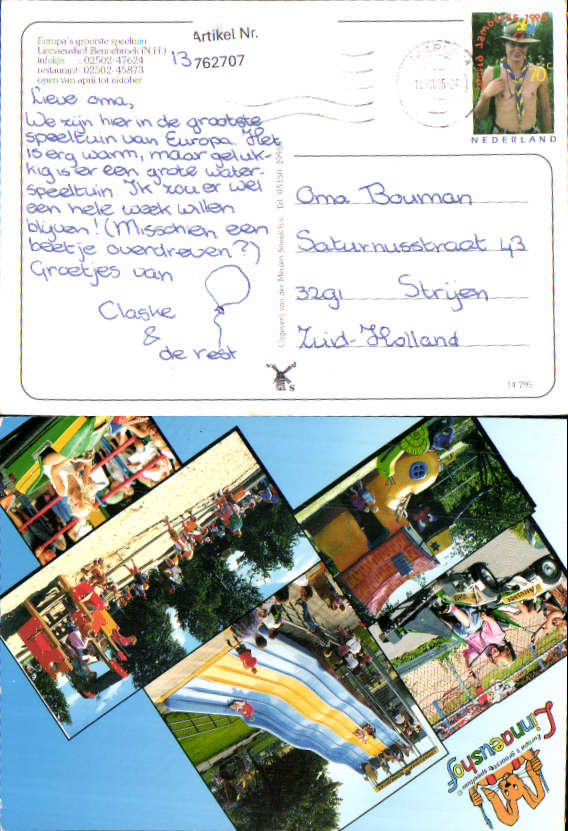 Europa's grootste speeltuin
Linnaeushof Bennebroek (N.H.)
infolijn : 02502-47624
restaurant: 02502-45873
open van april tot oktober
Artikel Nr.
13 762707
Lieve oma,
We zijn hier in de grootste
speeltuin van Europa. Het
is erg warm, maar geluk-
kig is er een grote water-
speeltuin. Ik zou er wel
een hele week willen
blijven! (Misschien een
beetje overdreven?)
Groetjes van
Claske
&
de rest
Uitgeverij van der Meulen-Sneek b.v. Tel. 05150
World Jamboree 1995
70c
NEDERLAND
Oma Bouman
Saturnusstraat 43
3291 Strijen
Zuid-Holland
v M
s
14 795
Linnaeushof
Europa's grootste speeltuin
©